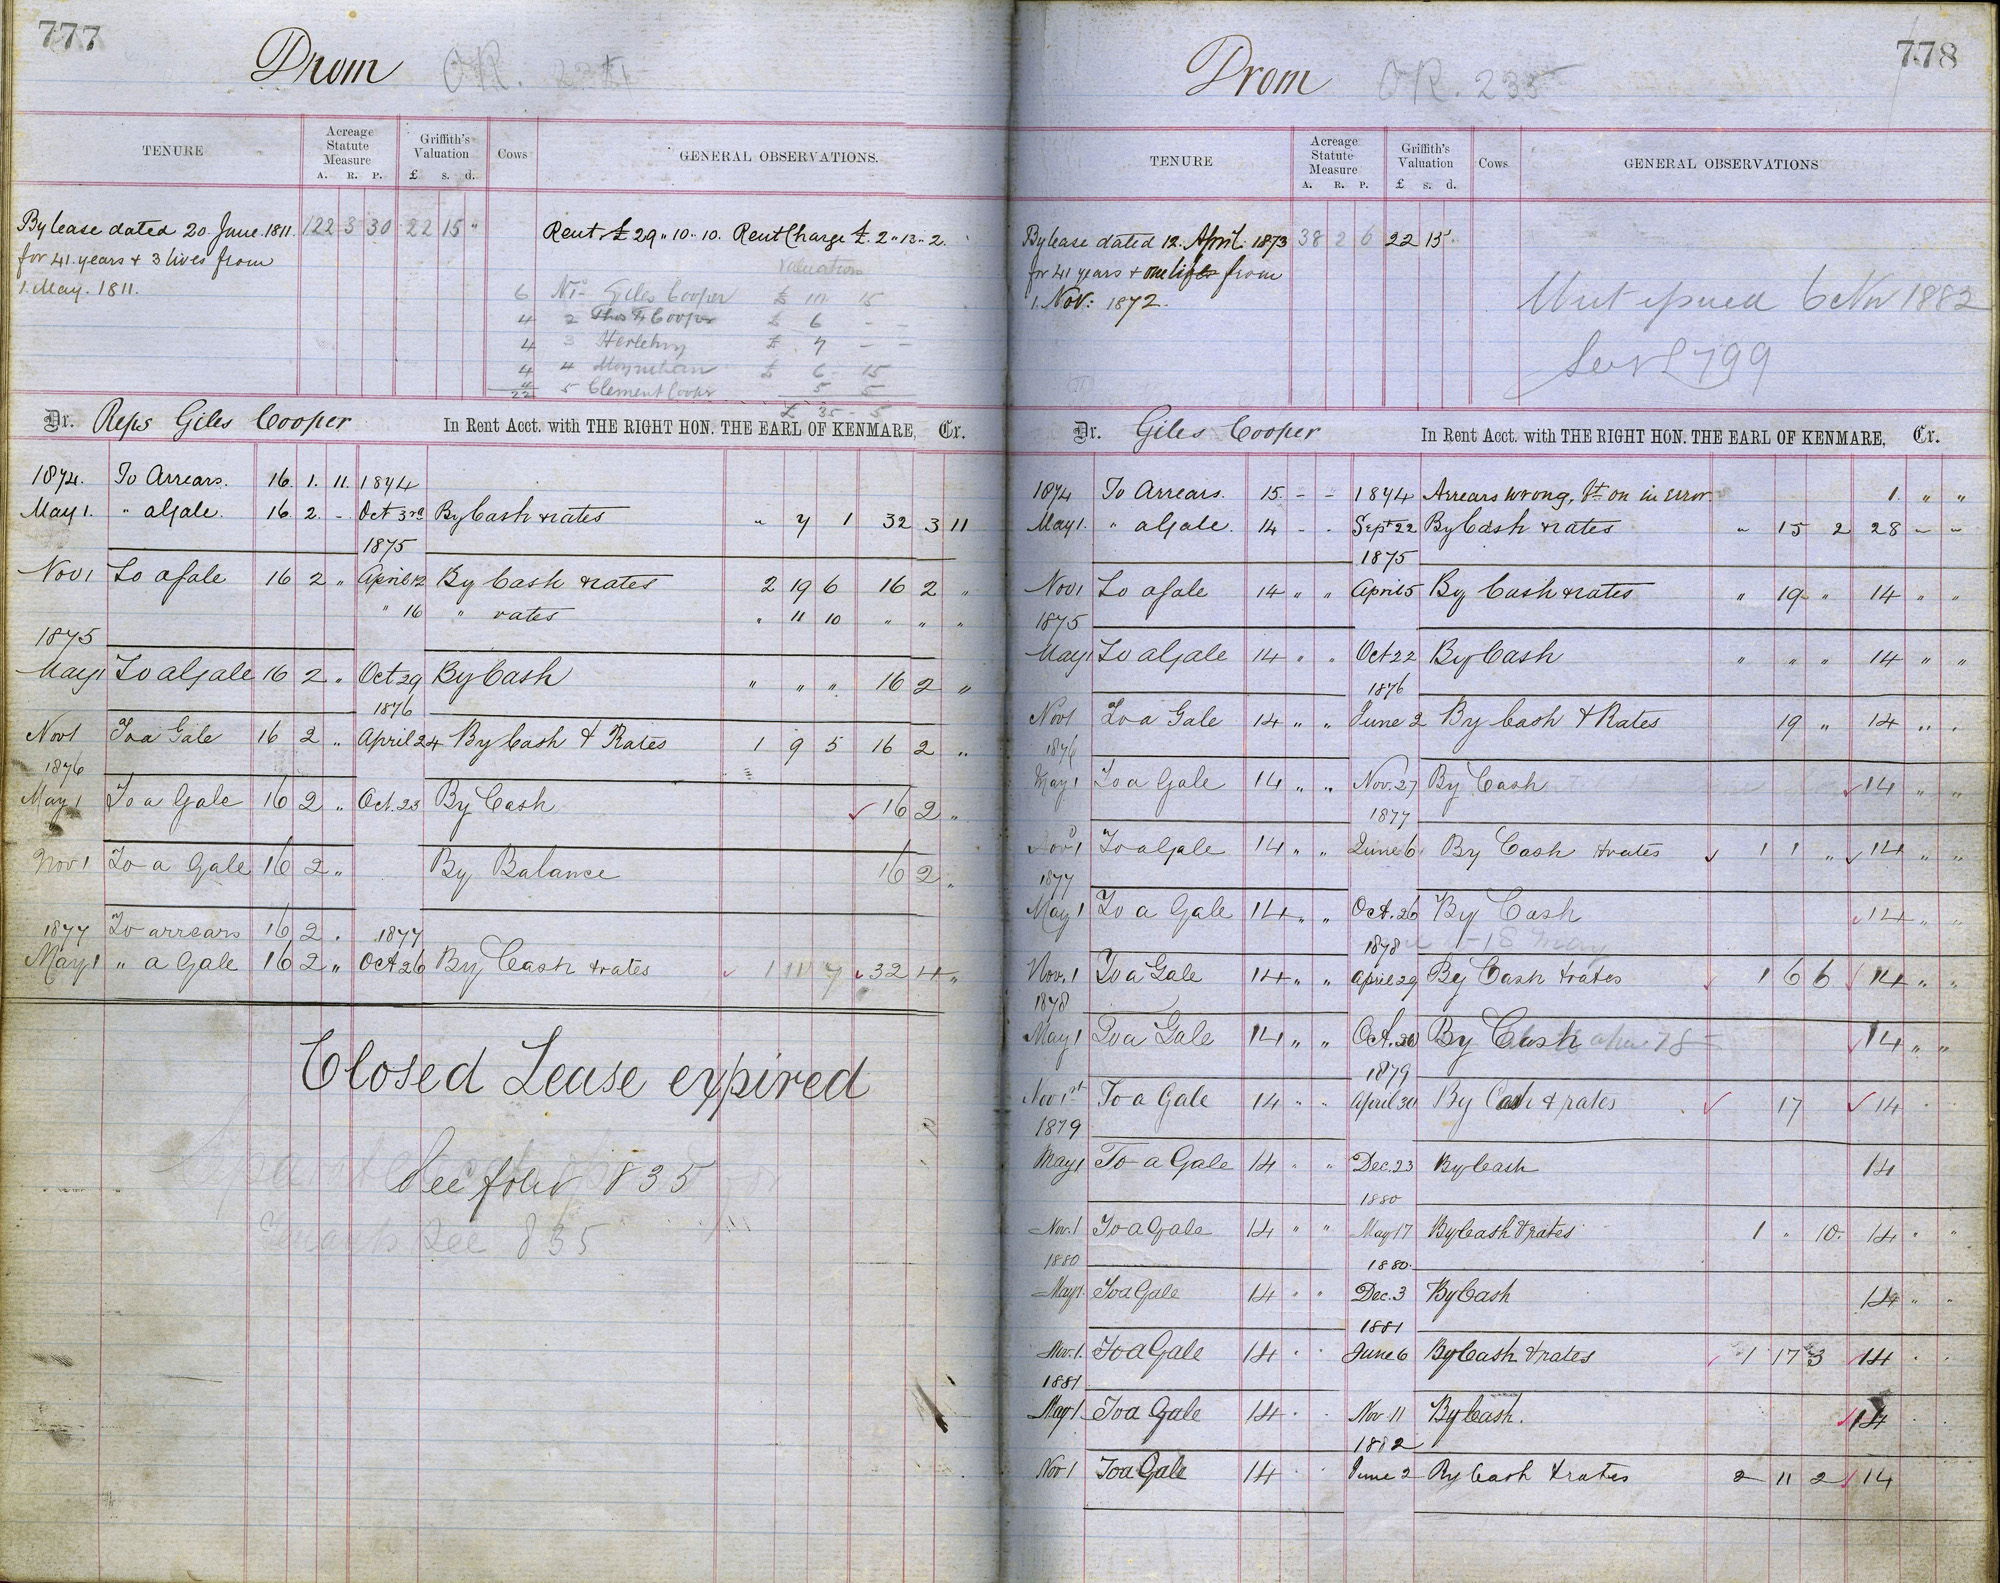 777
Drom OR. 234
TENURE
Acreage Statute Measure
A. R. P.
Griffith's Valuation
£ s. d.
Cows
GENERAL OBSERVATIONS.
By lease dated 20 June 1811. 122 3 30 22 15 "
for 41 years + 3 lives from
1. May. 1811.
Rent £ 29 " 10 " 10. Rent Charge £. 2 " 13 " 2.
Valuation
6 No 1 Giles Cooper £ 10 15
4 2 Cooper £ 6 - -
4 3 Herlehy £ 7 - -
4 4 Moynihan £ 6 - 15
4 5 Clement Cooper 5 5
22 £ 35 - 5
Dr. Reps Giles Cooper In Rent Acct. with THE RIGHT HON. THE EARL OF KENMARE, Cr.
1874. To Arrears. 16. 1. 11. 1874
May 1. " a Gale. 16. 2. - Oct 3rd By Cash & rates " 7 1 32 3 11
1875
Nov 1 To a Gale 16 2 " April 12 By Cash & rates 2 19 6 16 2 "
" 16 " rates " 11 10 " " "
1875
May 1 To a Gale 16 2 " Oct 29 By Cash " " " 16 2 "
1876
Nov 1 To a Gale 16 2 " April 24 By Cash & Rates 1 9 5 16 2 "
1876
May 1 To a Gale 16 2 " Oct. 23 By Cash 16 2 "
Nov 1 To a Gale 16 2 " By Balance 16 2 "
1877 To arrears 16 2 . 1877
May 1 " a Gale 16 2 " Oct 26 By Cash & rates 1 11 7 32 4 "
Closed Lease expired
See folio 835
See 835
778
Drom OR. 235
TENURE
Acreage Statute Measure
A. R. P.
Griffith's Valuation
£ s. d.
Cows.
GENERAL OBSERVATIONS
By lease dated 12. April. 1873 38 2 6 22 15 "
for 41 years + one life from
1. Nov: 1872.
Writ issued 6 Nov 1882
799
Dr. Giles Cooper In Rent Acct. with THE RIGHT HON. THE EARL OF KENMARE, Cr.
1874 To Arrears. 15. - - 1874 Arrears wrong, on in error 1. " "
May 1. " a Gale. 14 - - Sept 22 By Cash & rates " 15 2 28 - -
1875
Nov 1 To a Gale 14 " " April 5 By Cash & rates " 19 " 14 " "
1875
May 1 To a Gale 14 " " Oct 22 By Cash " " " 14 " "
1876
Nov 1 To a Gale 14 " " June 2 By Cash & Rates 19 " 14 " "
1876
May 1 To a Gale 14 " " Nov. 27 By Cash 14 " "
1877
Nov 1 To a Gale 14 " " June 6 By Cash & rates 1 1 " 14 " "
1877
May 1 To a Gale 14 " " Oct. 26 By Cash 14 " "
1878
Nov. 1 To a Gale 14 " " April 29 By Cash & rates 1 6 6 14 " "
1878
May 1 To a Gale 14 " " Oct. 20 By Cash 14 " "
1879
Nov 1st To a Gale 14 " " April 30 By Cash & rates 17 14
1879
May 1 To a Gale 14 " " Dec. 23 By Cash 14
1880
Nov. 1 To a Gale 14 " " May 17 By Cash & rates 1 " 10. 14 " "
1880 1880.
May 1 To a Gale 14 " " Dec. 3 By Cash 14 " "
1881
Nov. 1. To a Gale 14 . . June 6 By Cash & rates 1 17 3 14 . .
1881
May 1 To a Gale 14 . . Nov. 11 By Cash. 14
1882
Nov 1 To a Gale 14 June 2 By Cash & rates 2 11 2 14